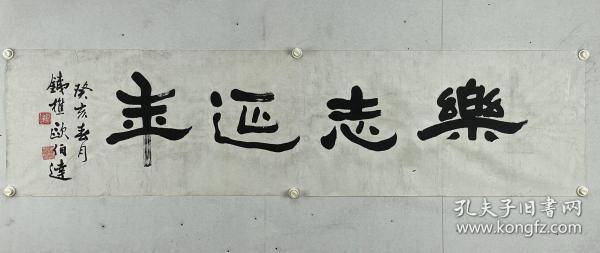 樂志延年
癸亥春月
鐵樵歐伯達
孔夫子旧书网
www.kongfz.com